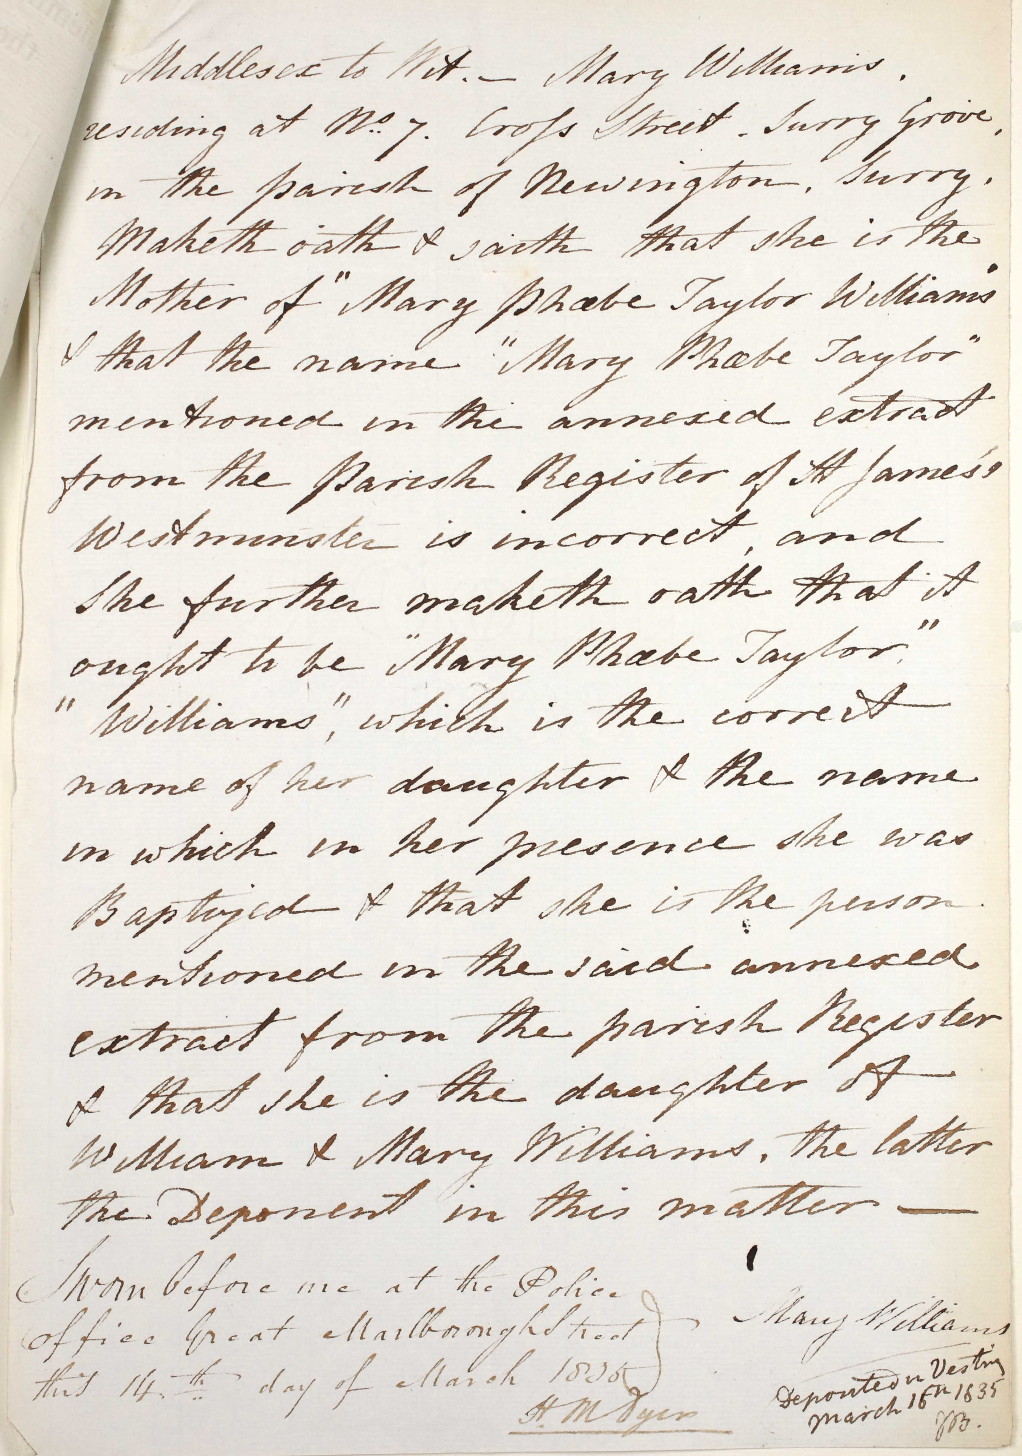 Middlesex to Wit. — Mary Williams.
residing at No. 7. Cross Street. Surry Grove,
in the parish of Newington. Surry.
Maketh oath & saith that she is the
Mother of "Mary Phœbe Taylor Williams"
& that the name "Mary Phœbe Taylor"
mentioned in the annexed extract
from the Parish Register of St James's
Westminster is incorrect, and
She further maketh oath that it
ought to be "Mary Phœbe Taylor."
"Williams", which is the correct
name of her daughter & the name
in which in her presence she was
Baptized & that she is the person
mentioned in the said annexed
extract from the parish Register
& that she is the daughter of
William & Mary Williams. the latter
the Deponent in this matter —
Sworn before me at the Police
Office Great Marlborough Street
this 14th day of March 1835
H. M. Dyer
Mary Williams
Deposited in Vestry
March 16th 1835